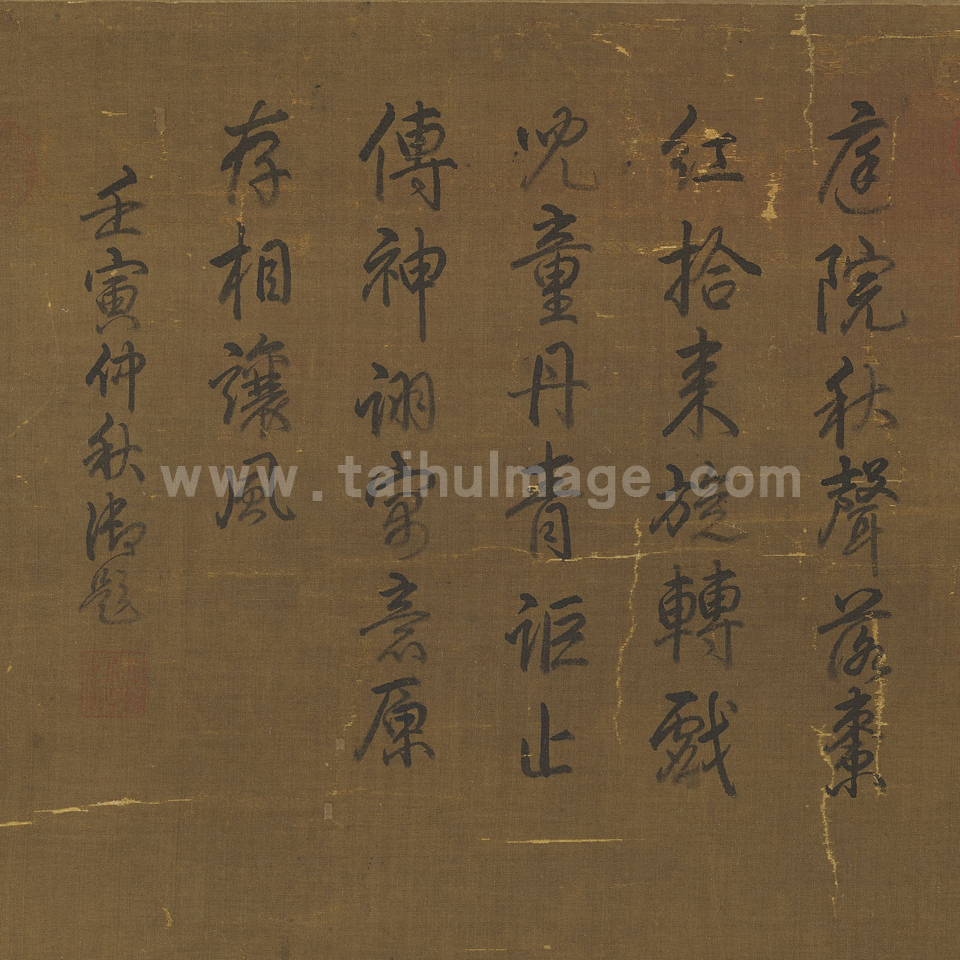 庭院秋聲落棗
紅拾來旋轉戲
兒童丹青詎止
傳神詡寓意原
存相讓風
壬寅仲秋御題
www.taihuImage.com